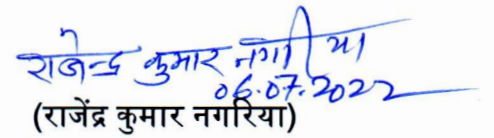 राजेन्द्र कुमार नगरिया
06.07.2022
(राजेंद्र कुमार नगरिया)